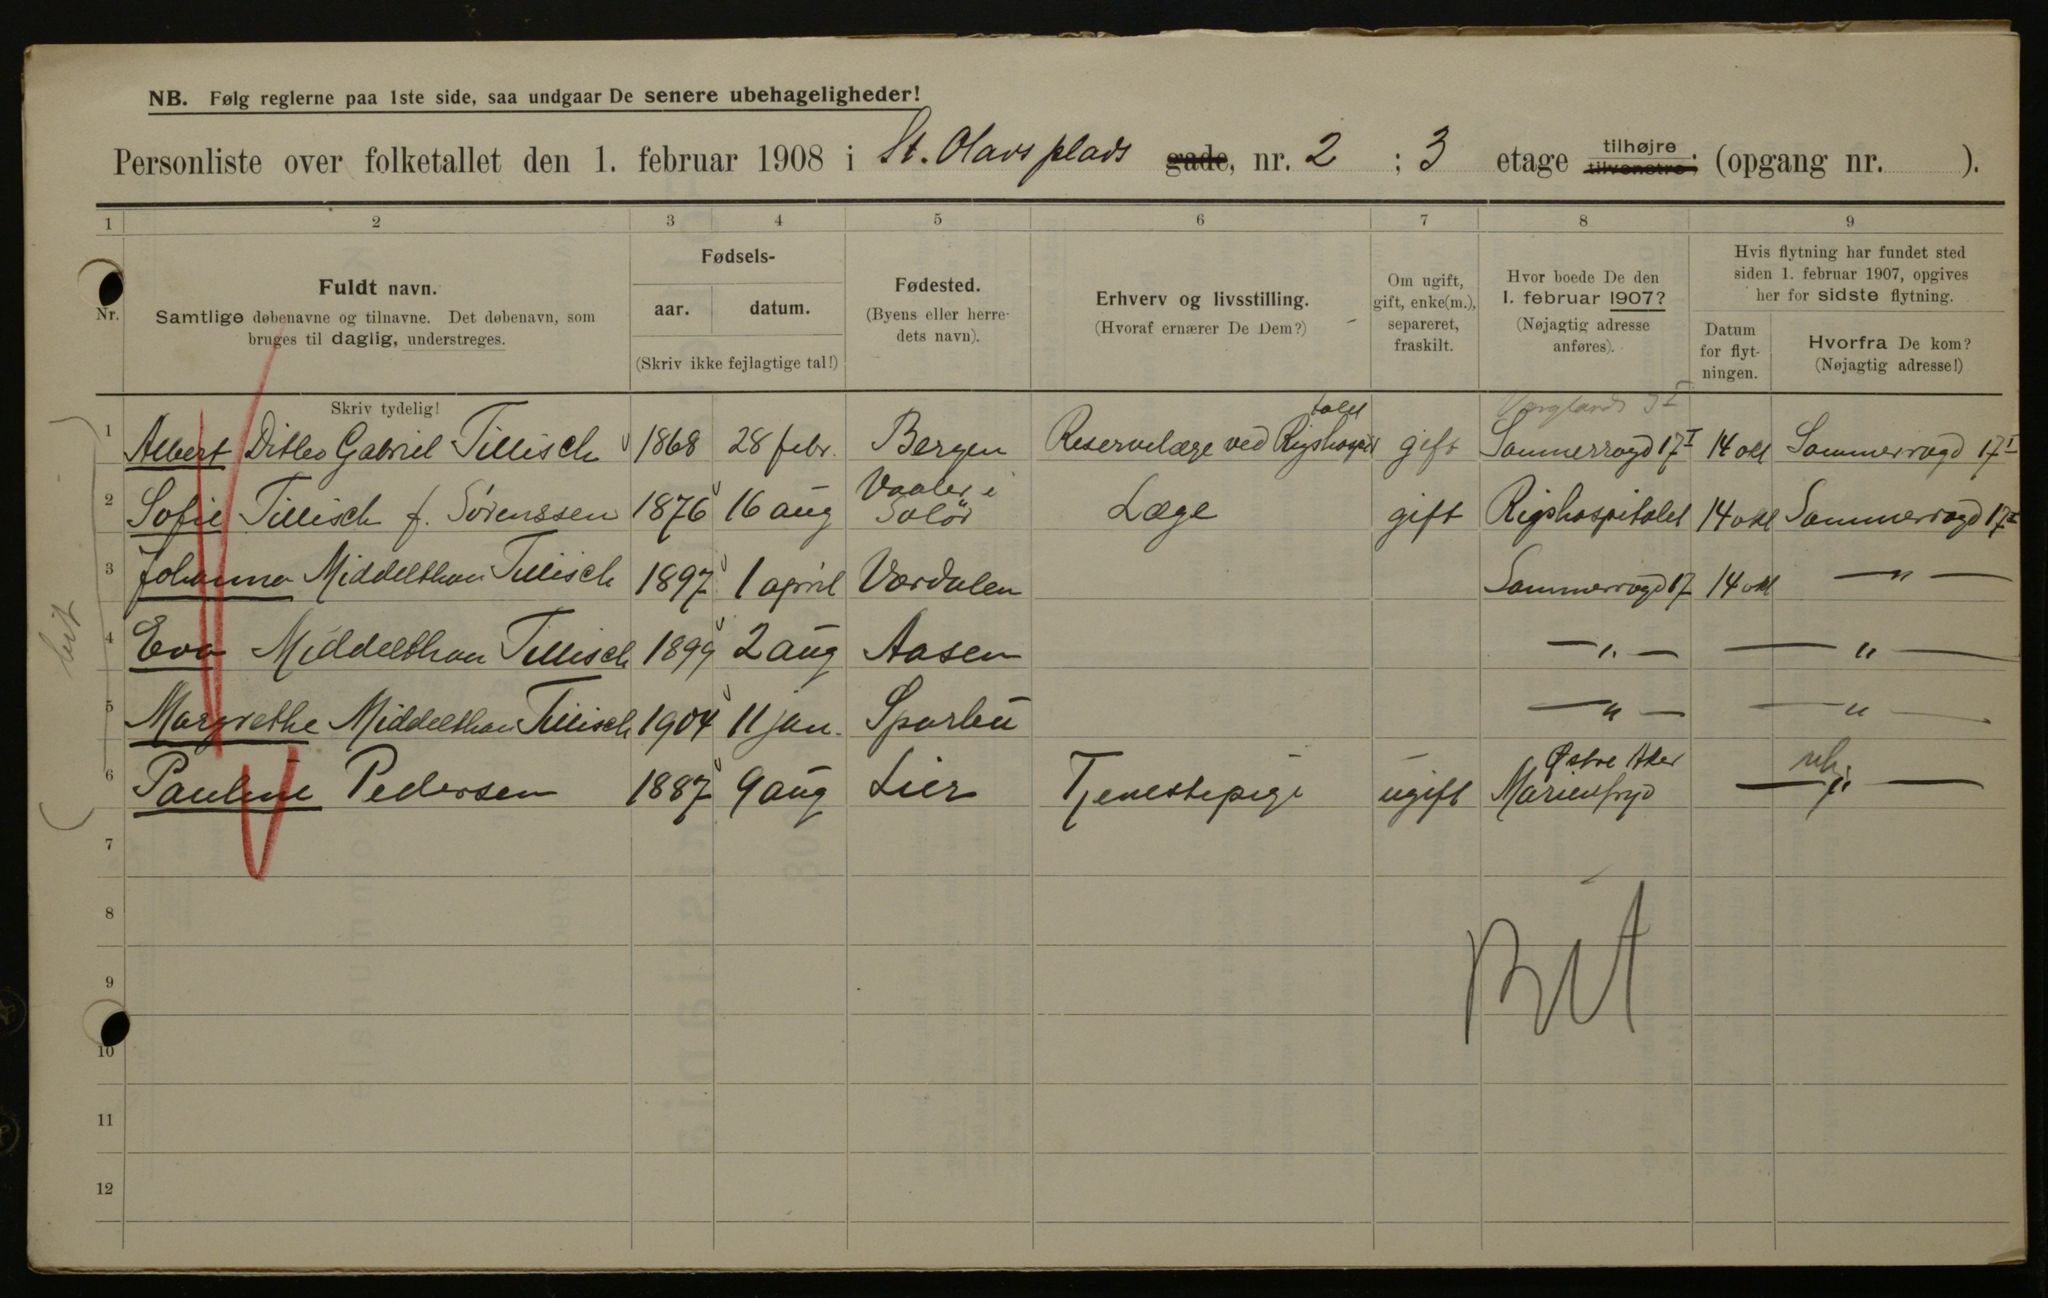 NB. Følg reglerne paa 1ste side, saa undgaar De senere ubehageligheder!
Personliste over folketallet den 1. februar 1908 i St. Olavs plads gade, nr. 2 ; 3 etage tilhøjre tilvenstre; (opgang nr. ).
1 2 3 4 5 6 7 8 9
Nr.
Fuldt navn.
Samtlige døbenavne og tilnavne. Det døbenavn, som
bruges til daglig, understreges.
Skriv tydelig!
Fødsels-
aar. datum.
(Skriv ikke fejlagtige tal!)
Fødested.
(Byens eller herre-
dets navn).
Erhverv og livsstilling.
(Hvoraf ernærer De Dem?)
Om ugift,
gift, enke(m.),
separeret,
fraskilt.
Hvor boede De den
1. februar 1907?
(Nøjagtig adresse
anføres).
Hvis flytning har fundet sted
siden 1. februar 1907, opgives
her for sidste flytning.
Datum
for flyt-
ningen.
Hvorfra De kom?
(Nøjagtig adresse!)
1 Albert Ditlev Gabriel Tillisch 1868 28 febr. Bergen Reservelæge ved Rigshospitalet gift Sommerrogd 17 I 14 okt Sommerrogd 17 I
2 Sofie Tillisch f. Sörenssen 1876 16 aug Vaaler i Solör Læge gift Rigshospitalet 14 okt Sommerrogd 17 I
3 Johanna Middelthon Tillisch 1897 1 april Værdalen Sommerrogd 17 14 okt — " —
4 Eva Middelthon Tillisch 1899 2 aug Aasen — " — — " —
5 Margrethe Middelthon Tillisch 1904 11 jan. Sparbu — " — — " —
6 Pauline Pedersen 1887 9 aug Lier Tjenestepige ugift Østre Aker Marienfryd — " —
7
8
9
10
11
12